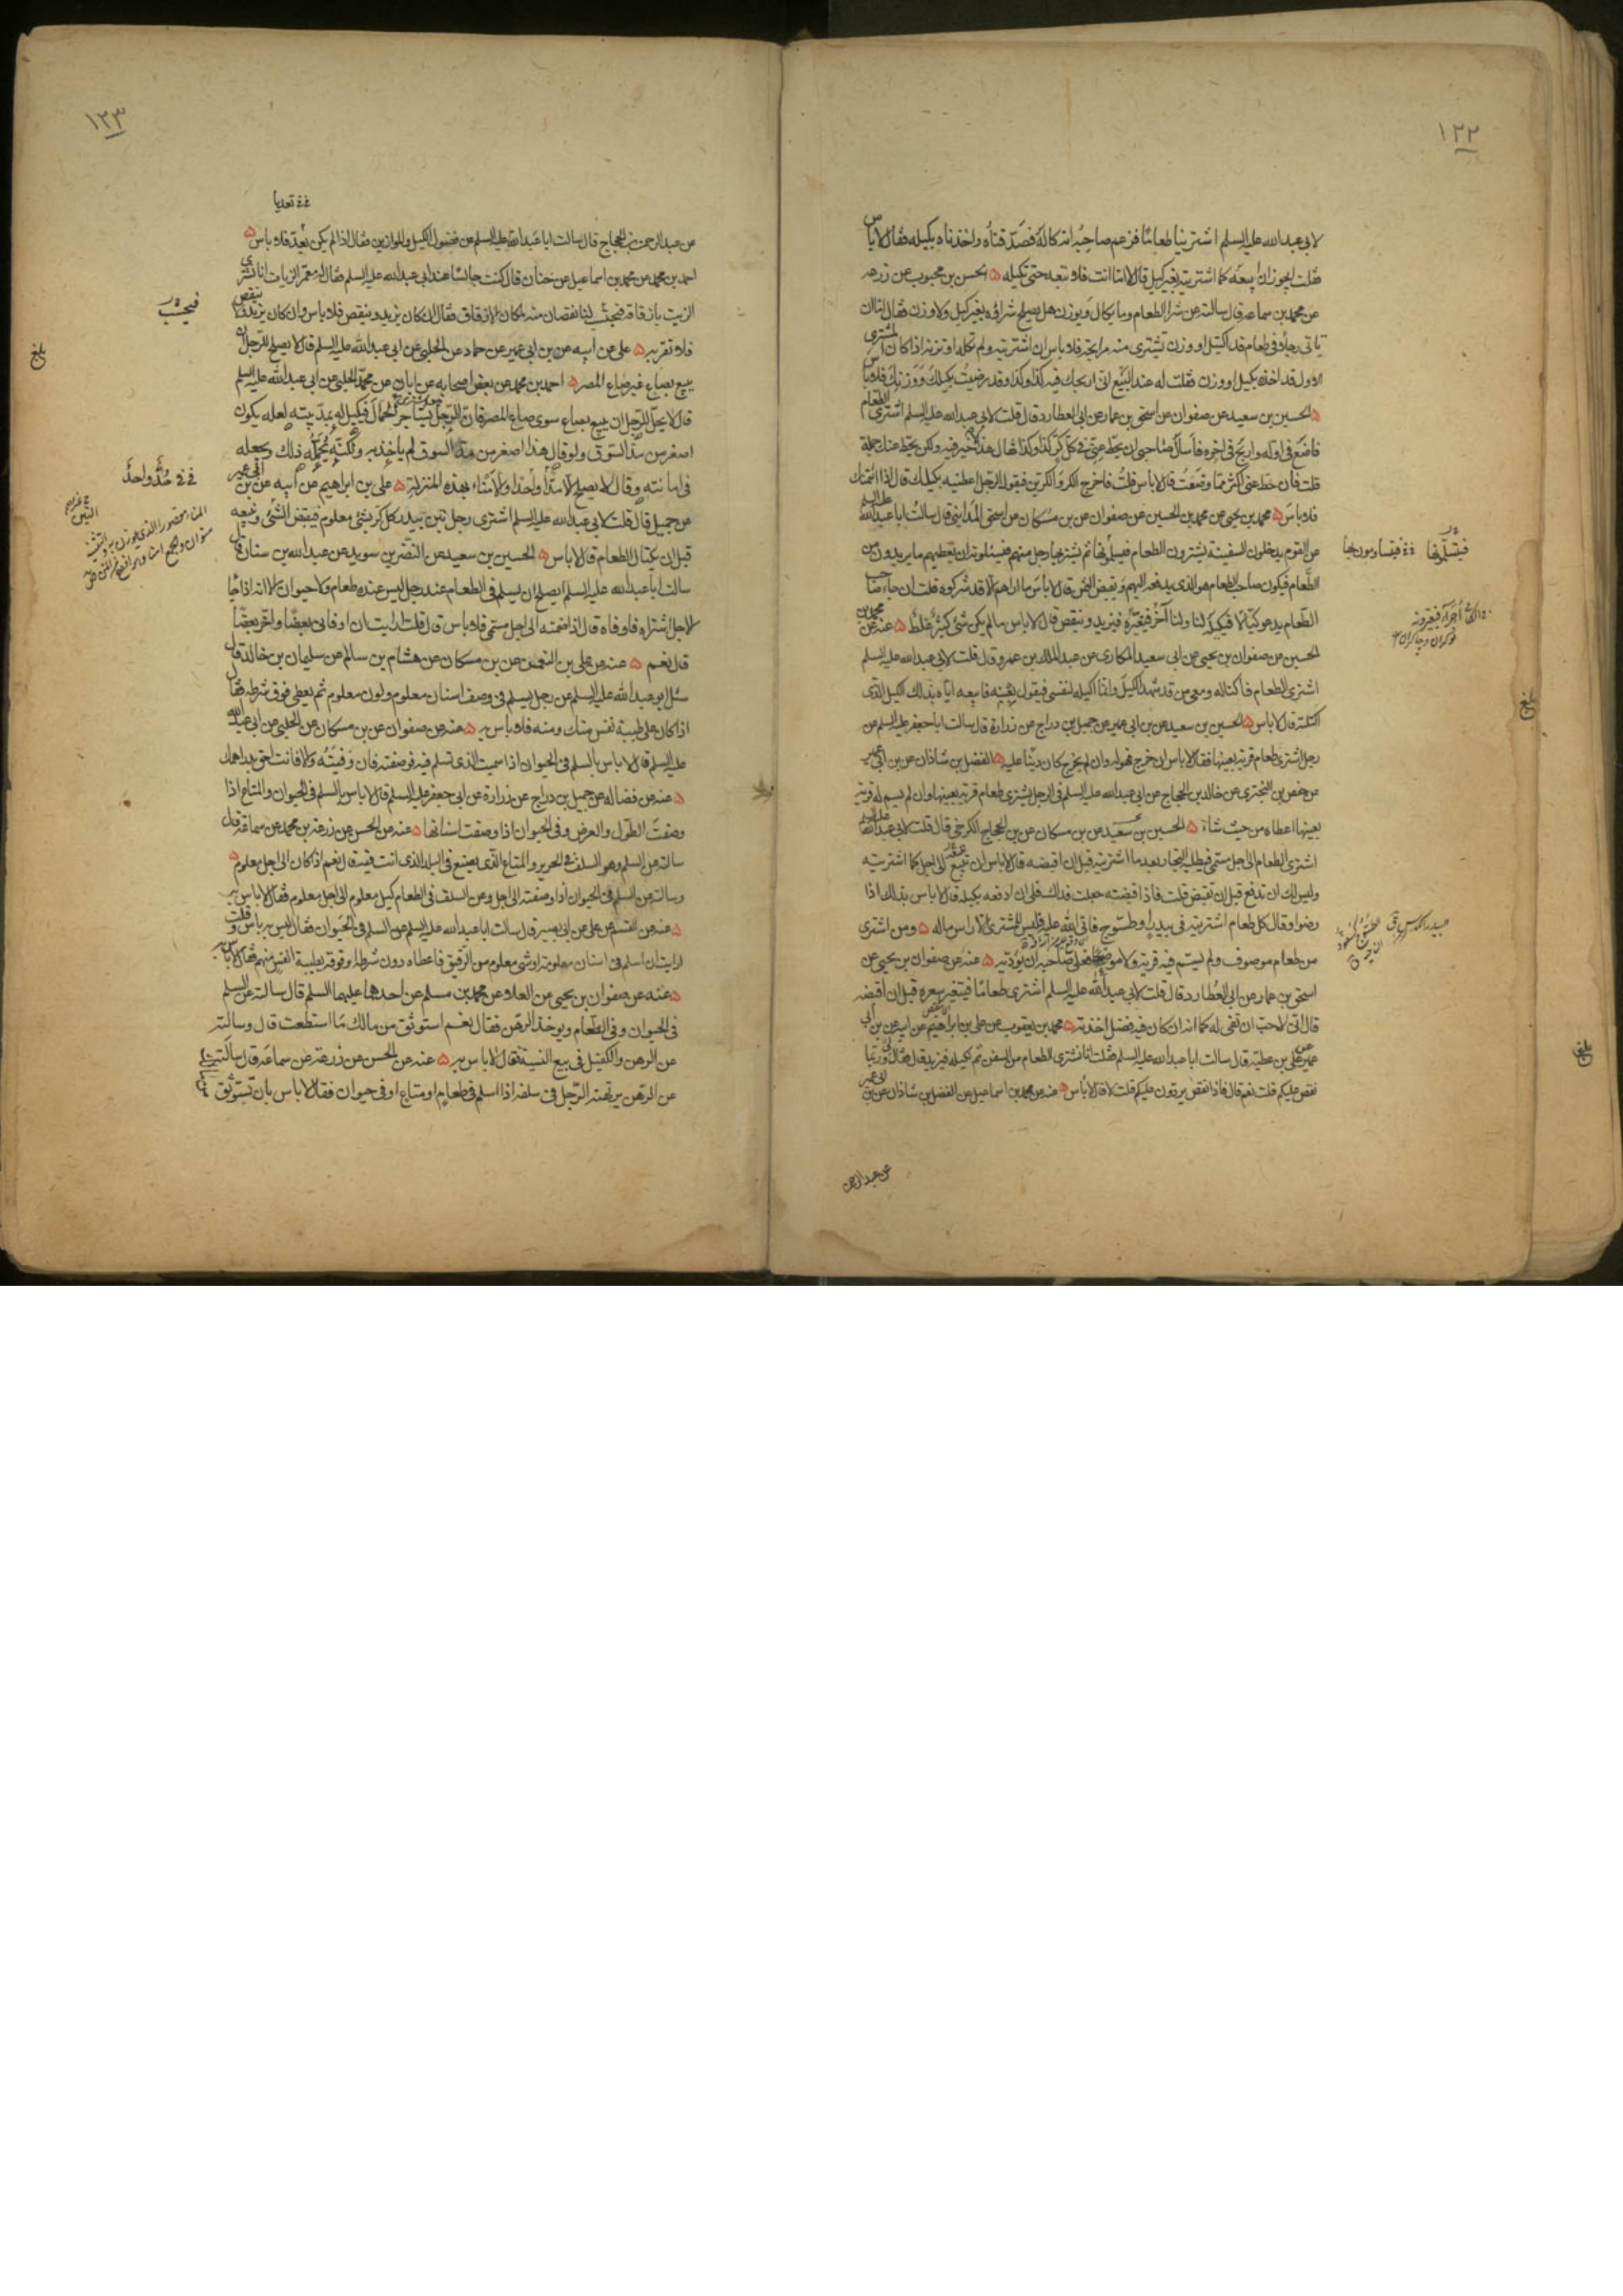 ١٢٢
لابي عبدالله عليه السلم اشترينا طعاما فزعم صاحبه انه كاله فصدقناه واخذناه بكيله فقال لاباس
فقلت ايجوز ان ابيعه كما اشتريته بغير كيل قال لا اما انت فلا تبعه حتى تكيله ۵ الحسن بن محبوب عن زرعه
عن محمد بن سماعه قال سالته عن شرا الطعام وما يكال ويوزن هل يصلح شراؤه بغير كيل ولا وزن فقال اما ان
ياتي رجلا في طعام قد اكتيل او وزن تشترى منه مرابحة فلا باس ان اشتريته ولم تكله او تزنه اذا كان المشترى
الاول قد اخذه بكيل او وزن فقلت له عند البيع انى اربحك فيه كذا وكذا وقد رضيت بكيلك ووزنك فلا باس
۵ الحسين بن سعيد عن صفوان عن اسحق بن عمار عن ابى العطارد قال قلت لابى عبدالله عليه السلم اشترى الطعام
فاضع فى اوله واربح فى اخره فاسال صاحبى ان يحط عنى فى كل كر كذا وكذا فقال هذا لا خير فيه ولكن يحط عنك جملة
قلت فان حط عنى اكثر مما وضعت قال لاباس قلت فاخرج الكر والكرين فيقول الرجل اعطنيه بكيلك قال اذا ائتمنك
فلا باس ۵ محمد بن يحيى عن محمد بن الحسين عن صفوان عن بن مسكان عن اسحق المداينى قال سالت ابا عبدالله عليه السلم
عن القوم يدخلون السفينة يشترون الطعام فيسأونها ثم يشتريها رجل منهم فيسئلونه ان يعطيهم ما يريدون من
الطعام فيكون صاحب الطعام هو الذى يدفعه اليهم ويقبض الثمن قال لاباس ما اراهم الا قد شركوه قلت ان جاء صاحب
الطعام يدعو كيالا فيكيله لنا ولنا اجراء فيعيّره فيزيد وينقص قال لاباس مالم يكن شئ كثير غلط ۵ عنه عن محمد بن
الحسين عن صفوان بن يحيى عن ابى سعيد المكارى عن عبدالملك بن عمرو قال قلت لابى عبدالله عليه السلم
اشترى الطعام فأكتاله ومعى من قد شهد الكيل وانما اكيله لنفسى فيقول بعنيه فابيعه اياه بذلك الكيل الذى
اكتلته قال لاباس ۵ الحسين بن سعيد عن بن ابى عمير عن جميل بن دراج عن زرارة قال سالت ابا جعفر عليه السلم عن
رجل اشترى طعام قرية بعينها فقال لاباس ان خرج فهو له وان لم يخرج كان دينا عليه ۵ الفضل بن شاذان عن بن ابى عمير
عن حفص بن البخترى عن خالد بن الحجاج عن ابى عبدالله عليه السلم فى الرجل يشترى طعام قرية بعينها وان لم يسم له قرية
بعينها اعطاه من حيث شاء ۵ الحسين بن سعيد عن بن مسكان عن بن الحجاج الكرخى قال قلت لابى عبدالله عليه السلم
اشترى الطعام الى اجل مسمى فيطلبه التجار بعد ما اشتريته قبل ان اقبضه قال لاباس ان تبيع الى اجل كما اشتريته
وليس لك ان تدفع قبل ان تقبض قلت فاذا قبضته جعلت فداك فلى ان ادفعه بكيله قال لاباس بذلك اذا
رضوا وقال كل طعام اشتريته فى بيدر او طسوج فاتى الله عليه فليس للمشترى الا راس ماله ۵ ومن اشترى
من طعام موصوف ولم يسم فيه قرية ولا موضعا فعلى صاحبه ان يؤديه ۵ عنه عن صفوان بن يحيى عن
اسحق بن عمار عن ابى العطارد قال قلت لابى عبدالله عليه السلم اشترى طعاما فيتغير سعره قبل ان اقبضه
قال انى لاحب ان تفى له كما انه ان كان فيه فضل اخذته ۵ محمد بن يعقوب عن على بن ابراهيم عن ابيه عن بن ابى
عمير عن على بن عطيه قال سالت ابا عبدالله عليه السلم فقلت انا نشترى الطعام من السفن ثم نكيله فيزيد قال فقال لى وربما
نقص عليكم قلت نعم قال فاذا نقص يردون عليكم قلت لا قال لاباس ۵ عنه عن محمد بن اسماعيل عن الفضل بن شاذان عن بن ابى عمير
عن عبدالرحمن
بلغ
بلغ
١٢٣
تعديا
عن عبدالرحمن بن الحجاج قال سالت ابا عبدالله عليه السلم عن فضول الكيل والموازين فقال اذا لم يكن تعد فلا باس ۵
احمد بن محمد عن محمد بن اسماعيل عن حنان قال كنت جالسا عند ابى عبدالله عليه السلم فقال له معمر الزيات انا نشترى
الزيت بازقاقه فيحتسب لنا نقصان منه لمكان الازقاق فقال ان كان يزيد وينقص فلا باس وان كان يزيد ولا ينقص
فلا تقربه ۵ على عن ابيه عن بن ابى عمير عن حماد عن الحلبى عن ابى عبدالله عليه السلم قال لا يصلح للرجل ان
يبيع بصاع غير صاع المصر ۵ احمد بن محمد عن بعض اصحابه عن ابان عن محمد الحلبى عن ابى عبدالله عليه السلم
قال لا يحل للرجل ان يبيع بصاع سوى صاع المصر فان الرجل يستاجر الحمال فيكيل له بمد بيته لعله يكون
اصغر من مد السوق ولو قال هذا اصغر من مد السوق لم ياخذ به ولكنه يحمله ذلك ويجعله
فى امانته وقال لا يصلح الا مدا واحدا والامناء بهذه المنزلة ۵ على بن ابراهيم عن ابيه عن بن ابى عمير
عن جميل قال قلت لابى عبدالله عليه السلم اشترى رجل تبن بيدر كل كر بشئ معلوم فيقبض الشئ ويبيعه
قبل ان يكتال الطعام قال لاباس ۵ الحسين بن سعيد عن النضر بن سويد عن عبدالله بن سنان قال
سالت ابا عبدالله عليه السلم ايصلح ان يسلم فى الطعام عند رجل ليس عنده طعام ولا حيوان الا انه اذا جا
الاجل اشتراه فاوفاه قال اذا ضمنه الى اجل مسمى فلا باس قال قلت ارايت ان اوفانى بعضا واخر بعضا
قال نعم ۵ عنه عن على بن النعمان عن بن مسكان عن هشام بن سالم عن سليمان بن خالد قال
سئل ابو عبدالله عليه السلم عن رجل يسلم فى وصف اسنان معلوم ولون معلوم ثم يعطى فوق شرطه فقال
اذا كان على طيبة نفس منك ومنه فلا باس به ۵ عنه عن صفوان عن بن مسكان عن الحلبى عن ابى عبدالله
عليه السلم قال لا باس بالسلم فى الحيوان اذا سميت الذى تسلم فيه فوصفته فان وفيته والا فانت احق بدراهمك
۵ عنه عن فضاله عن جميل بن دراج عن زرارة عن ابى جعفر عليه السلم قال لا باس بالسلم فى الحيوان والمتاع اذا
وصفت الطول والعرض وفى الحيوان اذا وصفت اسنانها ۵ عنه عن الحسن عن زرعة بن محمد عن سماعة قال
سالته عن السلم وهو السلف فى الحرير والمتاع الذى يصنع فى البلد الذى انت فيه قال نعم اذا كان الى اجل معلوم ۵
وسالته عن السلم فى الحيوان اذا وصفته الى اجل وعن السلف فى الطعام كيل معلوم الى اجل معلوم فقال لاباس به
۵ عنه عن القسم عن على عن ابى بصير قال سالت ابا عبدالله عليه السلم عن السلم فى الحيوان فقال ليس به باس قلت
ارايت ان اسلم فى اسنان معلومة او شئ معلوم من الرقيق فاعطاه دون شرطه او فوقه بطيبة انفس منهم فقال لاباس به
۵ عنه عن صفوان بن يحيى عن العلا عن محمد بن مسلم عن احدهما عليهما السلم قال سالته عن السلم
فى الحيوان وفى الطعام ويوخذ الرهن فقال نعم استوثق من مالك ما استطعت قال وسالته
عن الرهن والكفيل فى بيع النسية فقال لاباس به ۵ عنه عن الحسن عن زرعة عن سماعة قال سالته
عن الرهن يرتهنه الرجل فى سلفه اذا اسلم فى طعام او متاع او فى حيوان فقال لاباس بان تستوثق
فيحتسب
مُدٌّ واحدٌ
بلغ